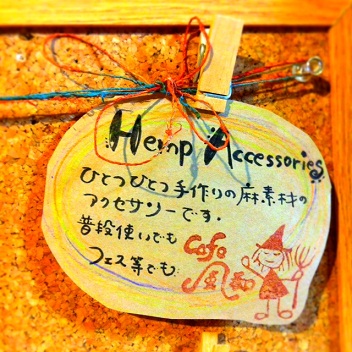 Hemp Accessories
ひとつひとつ手作りの麻素材の
アクセサリーです。
普段使いでも
フェス等でも
Cafe